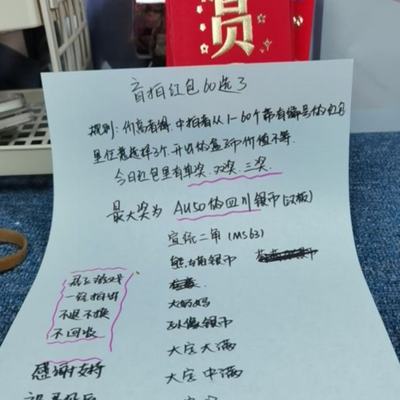 赏
盲拍红包60选3
规则:价高者得,中拍者从1-60个带有编号的红包
里任意选择3个,开出的盒子币价值不等.
今日红包里有单奖,双奖,三奖
最大奖为 AU50的四川银币(汉板)
宣统二角(MS63)
熊猫银币
大奶妈
孙像银币
大宝大满
大宝中满
一经拍出
不退不换
不回收
感谢支持